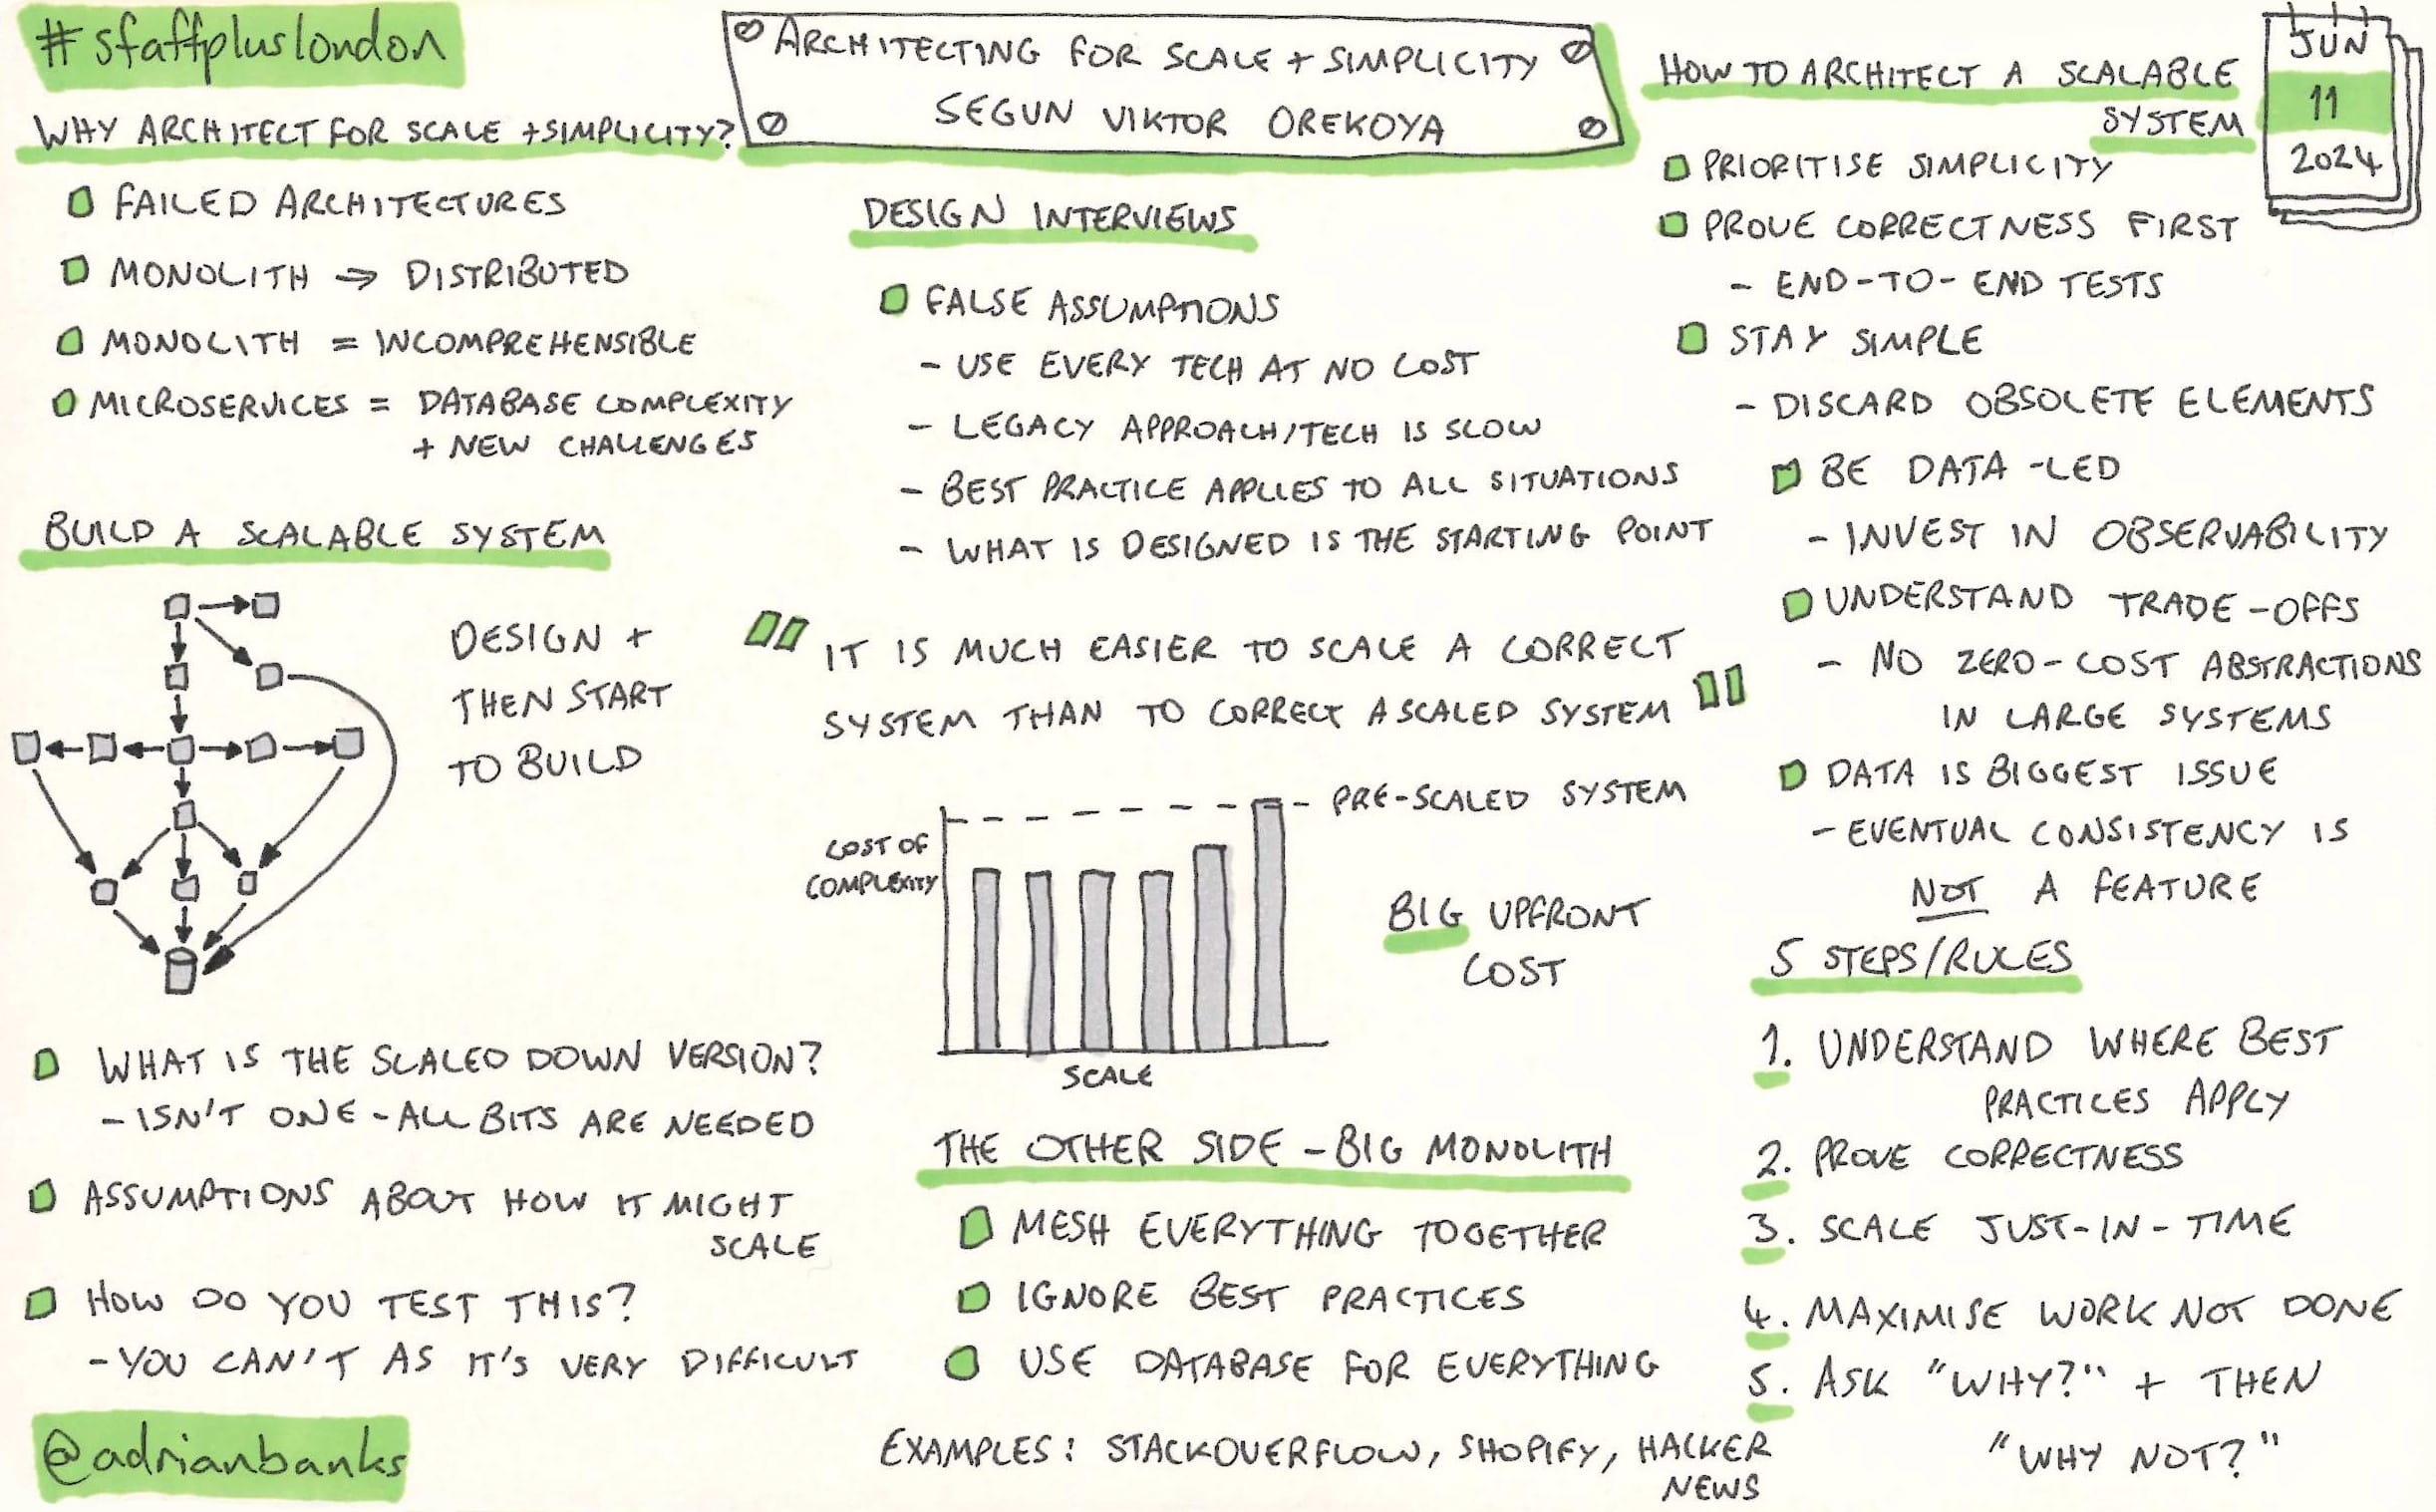 #staffpluslondon
ARCHITECTING FOR SCALE + SIMPLICITY
SEGUN VIKTOR OREKOYA
JUN
11
2024
WHY ARCHITECT FOR SCALE + SIMPLICITY?
FAILED ARCHITECTURES
MONOLITH ⇒ DISTRIBUTED
MONOLITH = INCOMPREHENSIBLE
MICROSERVICES = DATABASE COMPLEXITY
+ NEW CHALLENGES
BUILD A SCALABLE SYSTEM
DESIGN +
THEN START
TO BUILD
WHAT IS THE SCALED DOWN VERSION?
- ISN'T ONE - ALL BITS ARE NEEDED
ASSUMPTIONS ABOUT HOW IT MIGHT
SCALE
HOW DO YOU TEST THIS?
- YOU CAN'T AS IT'S VERY DIFFICULT
@adrianbanks
DESIGN INTERVIEWS
FALSE ASSUMPTIONS
- USE EVERY TECH AT NO COST
- LEGACY APPROACH/TECH IS SLOW
- BEST PRACTICE APPLIES TO ALL SITUATIONS
- WHAT IS DESIGNED IS THE STARTING POINT
" IT IS MUCH EASIER TO SCALE A CORRECT
SYSTEM THAN TO CORRECT A SCALED SYSTEM "
PRE-SCALED SYSTEM
COST OF
COMPLEXITY
BIG UPFRONT
COST
SCALE
THE OTHER SIDE - BIG MONOLITH
MESH EVERYTHING TOGETHER
IGNORE BEST PRACTICES
USE DATABASE FOR EVERYTHING
EXAMPLES: STACKOVERFLOW, SHOPIFY, HACKER
NEWS
HOW TO ARCHITECT A SCALABLE
SYSTEM
PRIORITISE SIMPLICITY
PROVE CORRECTNESS FIRST
- END-TO-END TESTS
STAY SIMPLE
- DISCARD OBSOLETE ELEMENTS
BE DATA-LED
- INVEST IN OBSERVABILITY
UNDERSTAND TRADE-OFFS
- NO ZERO-COST ABSTRACTIONS
IN LARGE SYSTEMS
DATA IS BIGGEST ISSUE
- EVENTUAL CONSISTENCY IS
NOT A FEATURE
5 STEPS/RULES
1. UNDERSTAND WHERE BEST
PRACTICES APPLY
2. PROVE CORRECTNESS
3. SCALE JUST-IN-TIME
4. MAXIMISE WORK NOT DONE
5. ASK "WHY?" + THEN
"WHY NOT?"